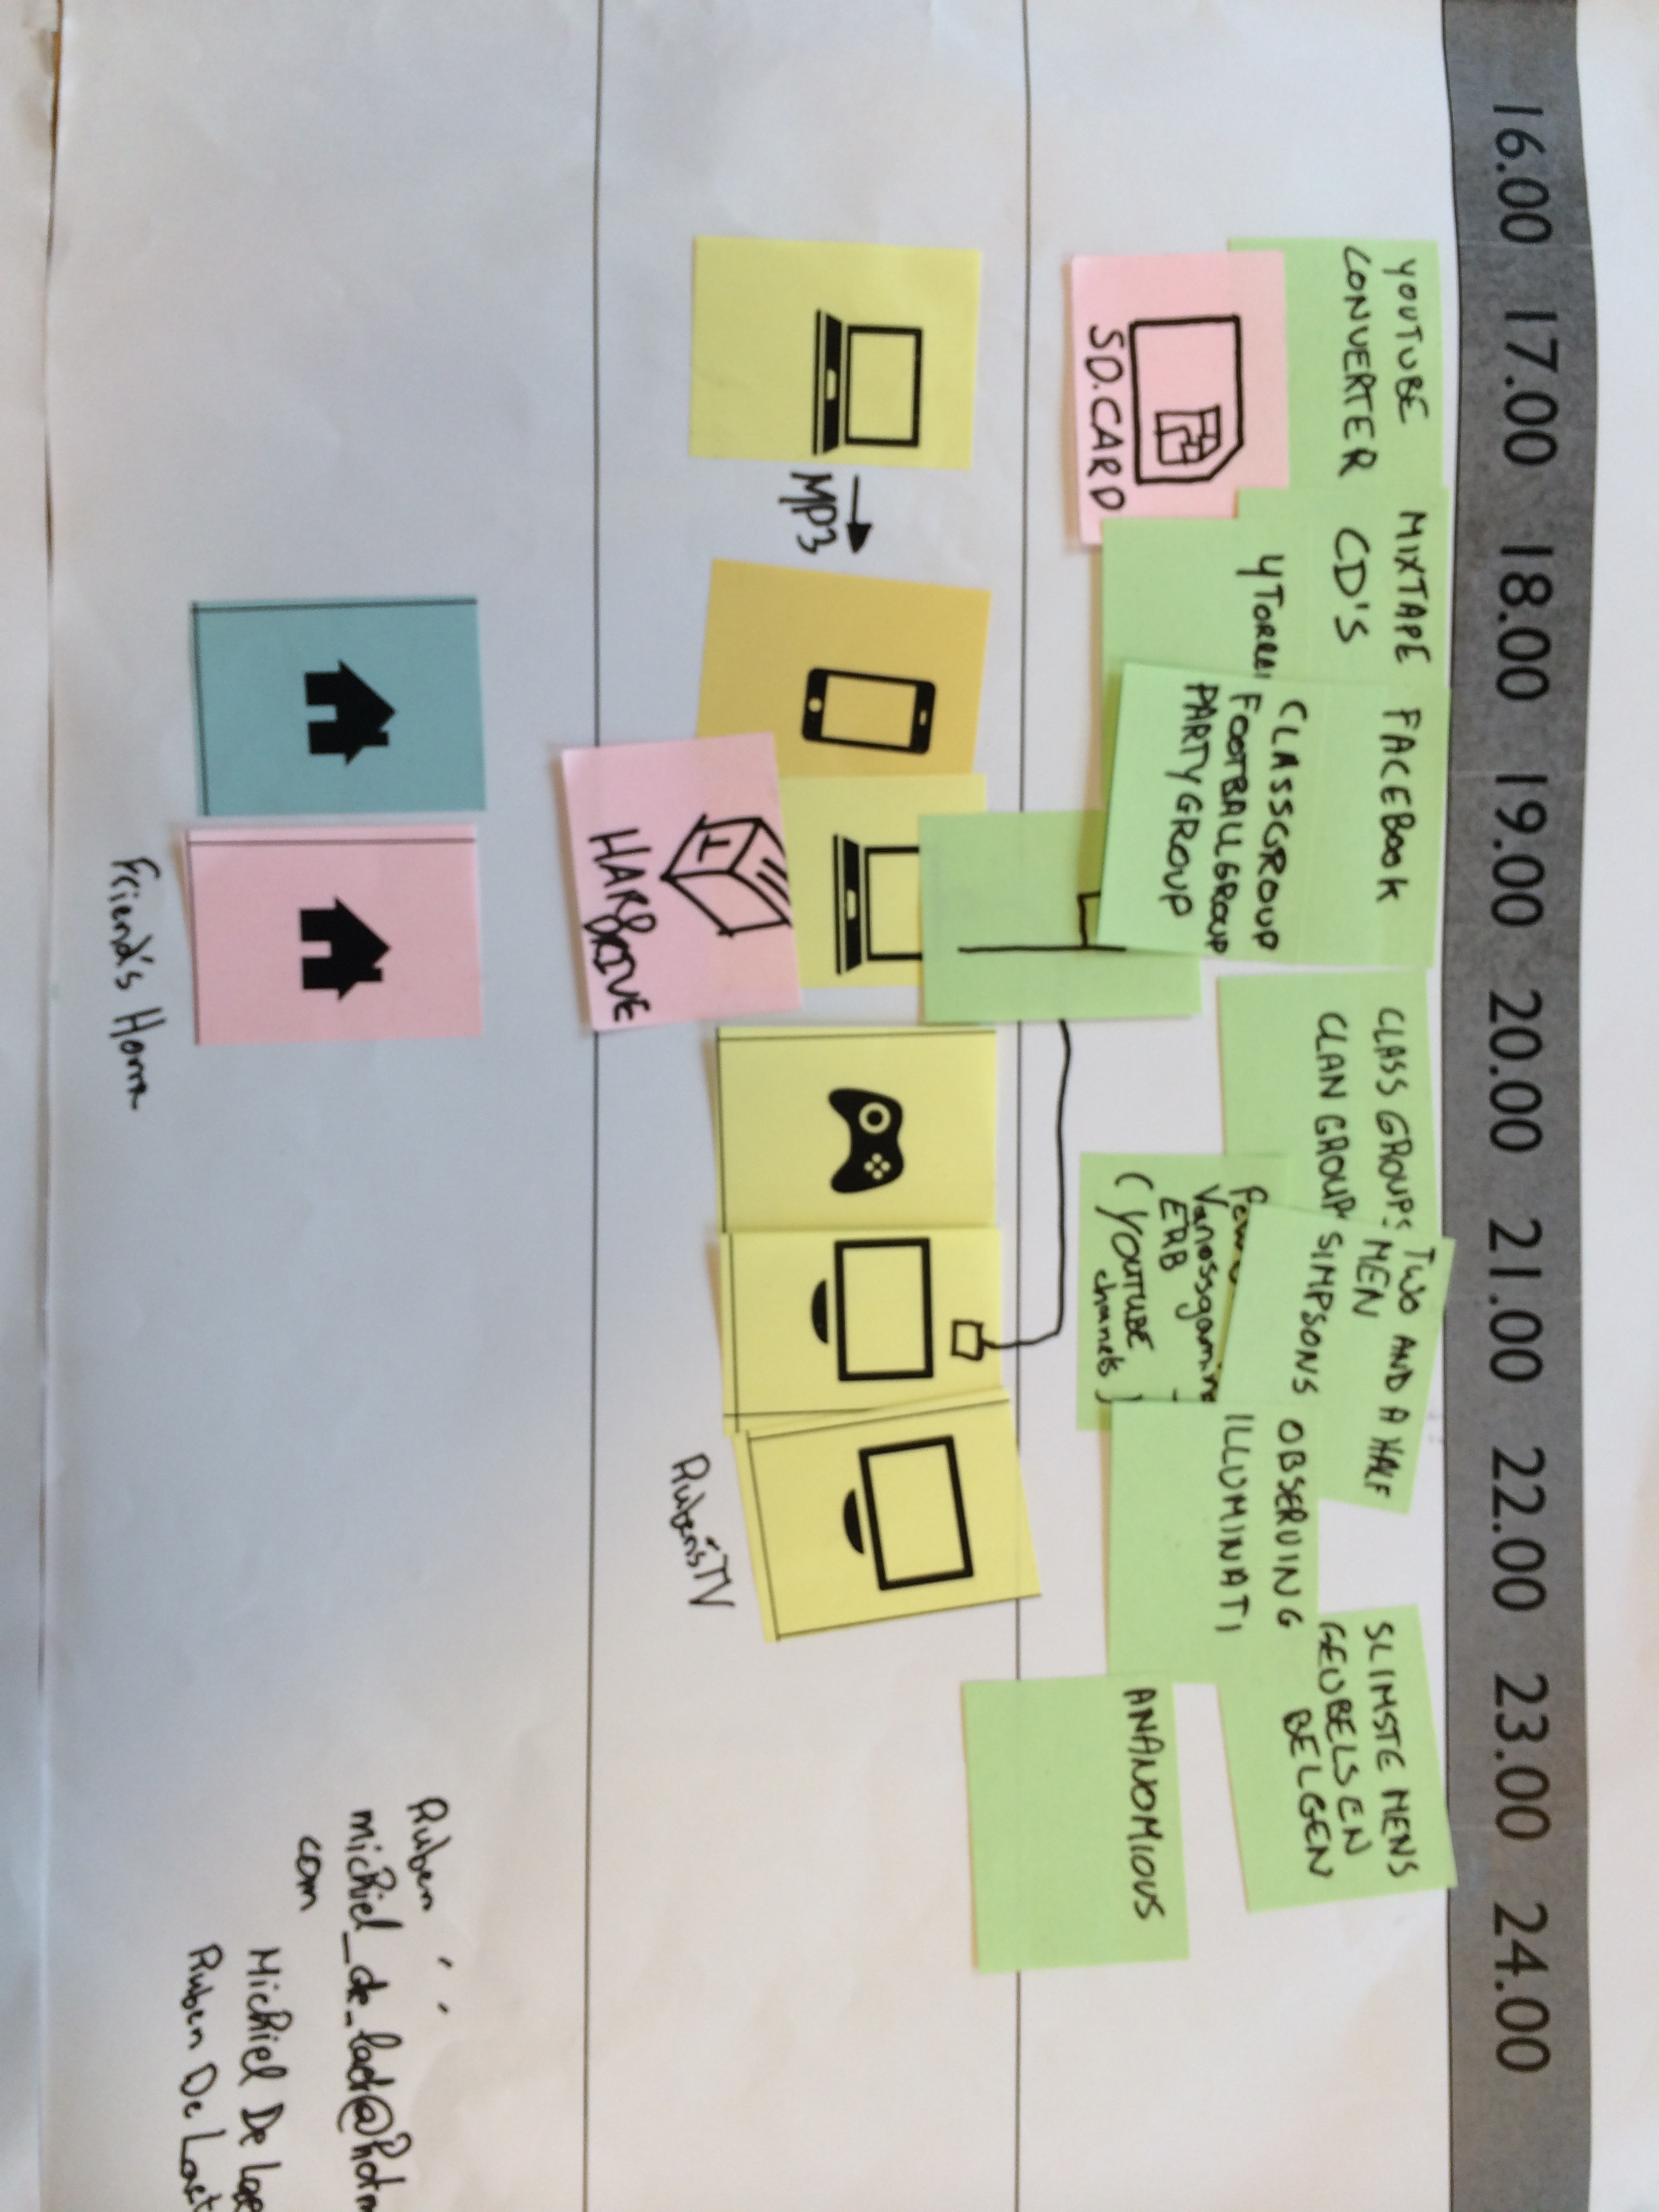 16.00 17.00 18.00 19.00 20.00 21.00 22.00 23.00 24.00
YOUTUBE
CONVERTER
SD.CARD
MIXTAPE
CD'S
FACEBOOK
CLASSGROUP
FOOTBALLGROUP
PARTYGROUP
CLASS GROUP
CLAN GROUP
TWO AND A HALF
MEN
SIMPSONS
Vanossgaming
ERB
(YOUTUBE
channels)
OBSERVING
ILLUMINATI
SLIMSTE MENS
GEUBELS EN
BELGEN
ANANOMIOUS
MP3
HARDDRIVE
Ruben's TV
Friend's Home
Ruben
com
Michiel De
Ruben De